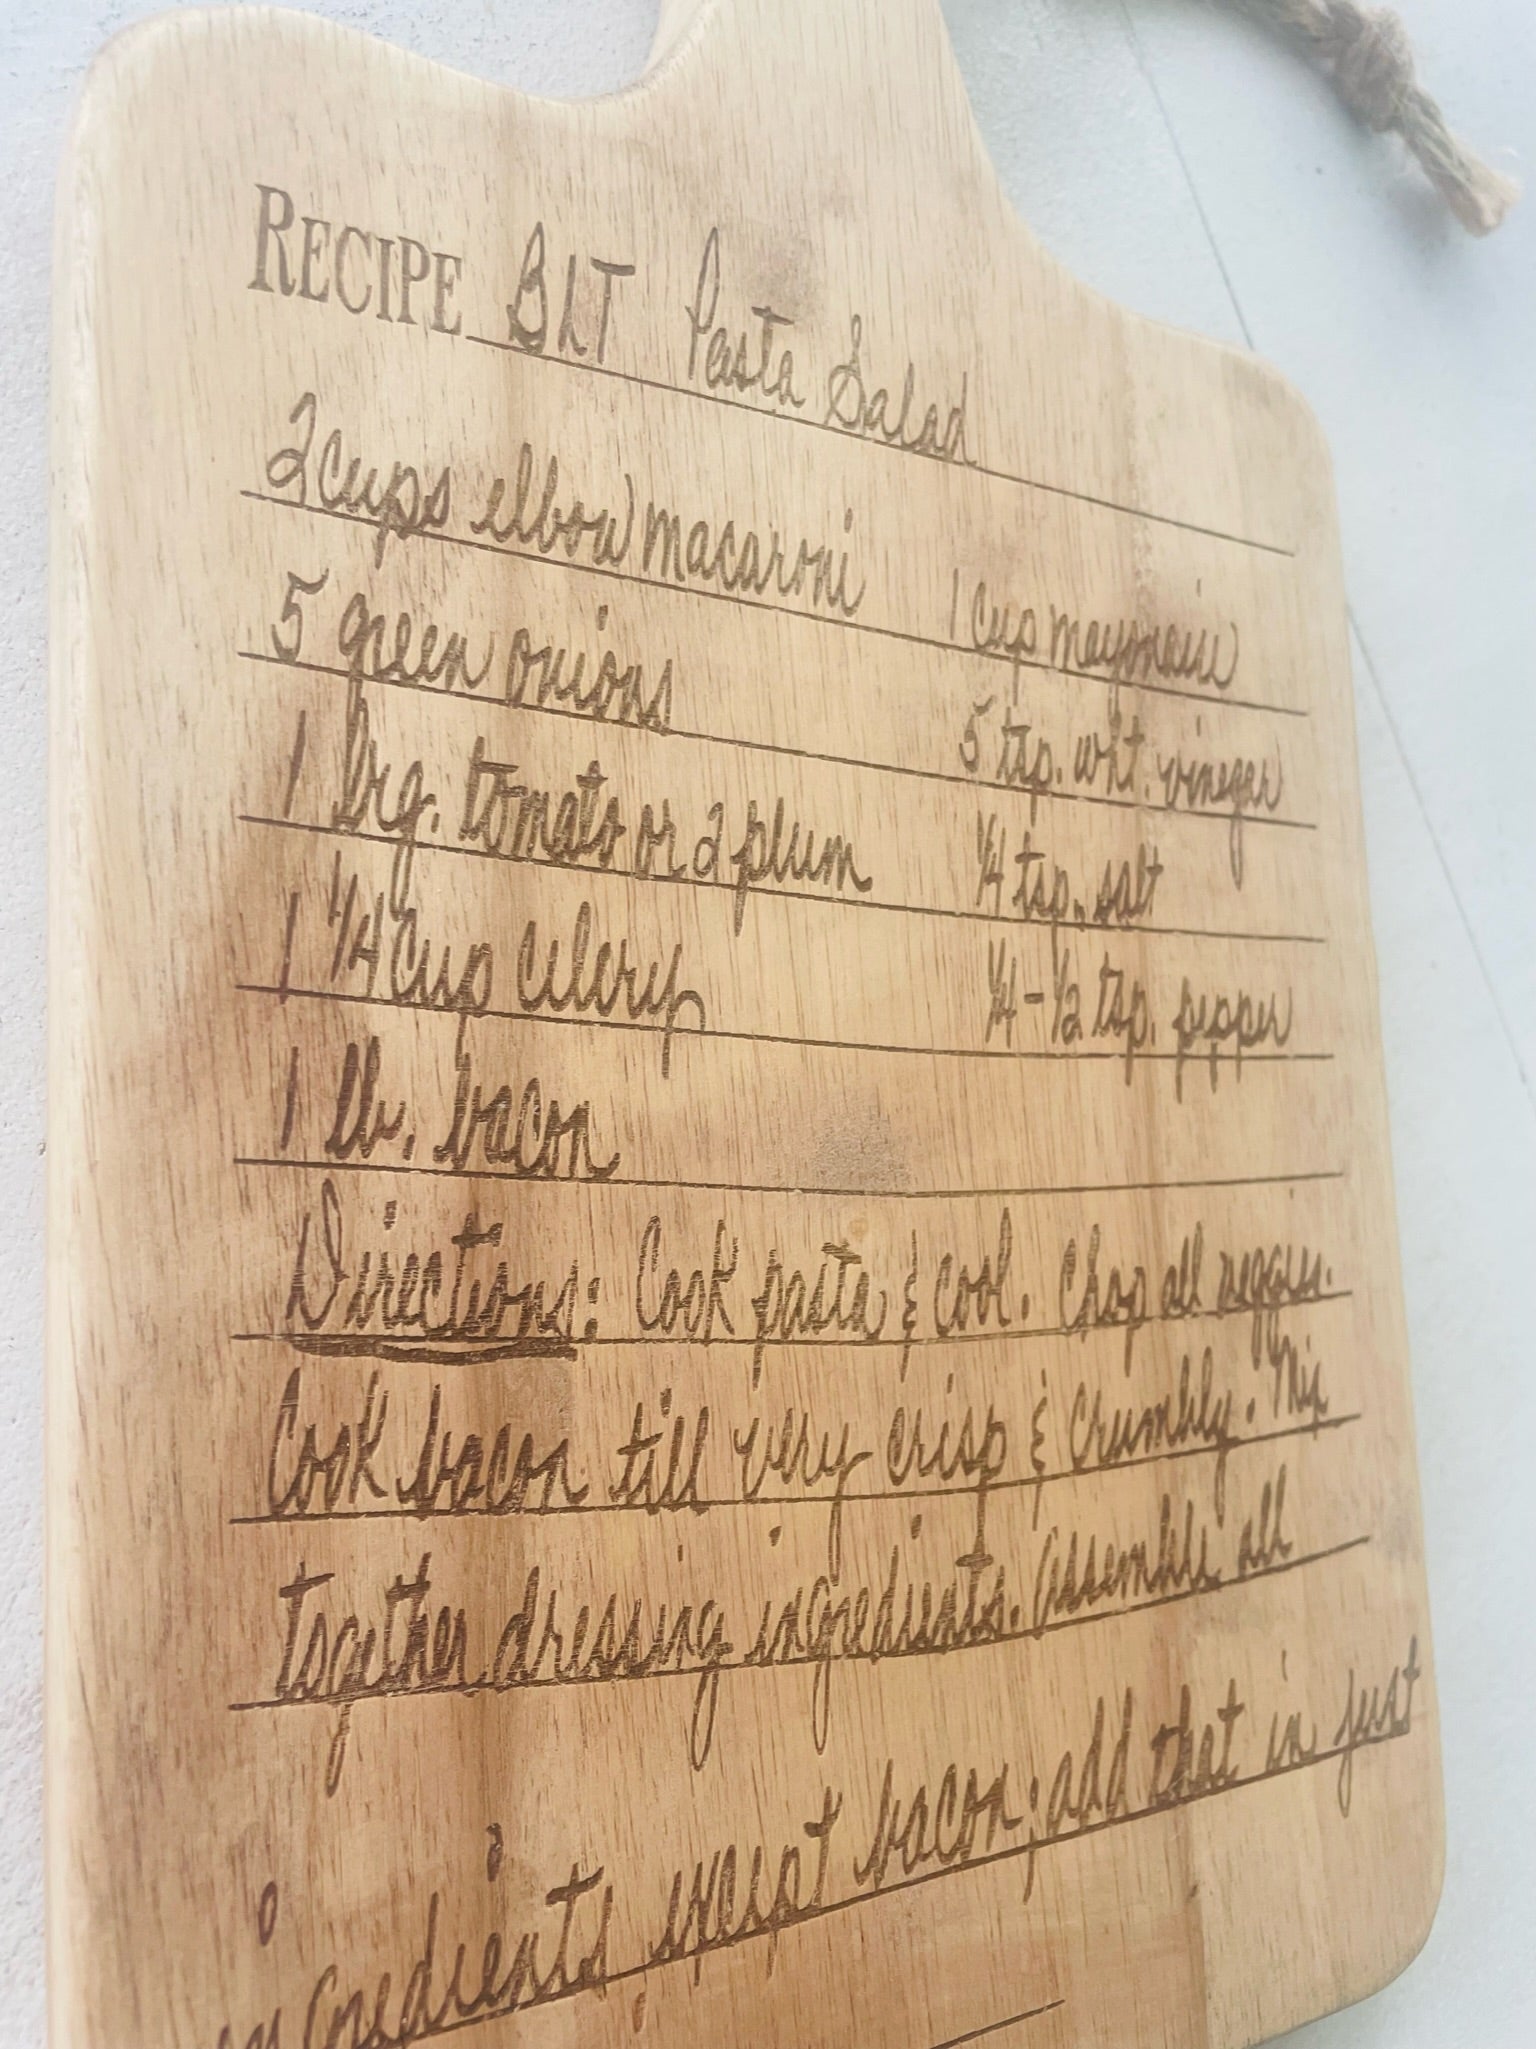 RECIPE BLT Pasta Salad
2 cups elbow macaroni 1 cup mayonaise
5 green onions 5 tsp. wht. vinegar
1 lrg. tomato or 2 plum 1/4 tsp. salt
1 1/4 cup celery 1/4 - 1/2 tsp. pepper
1 lb. bacon
Directions: Cook pasta & cool. Chop all veggies.
Cook bacon till very crisp & crumbly. Mix
together dressing ingredients. Assemble all
ingredients, except bacon; add that in just